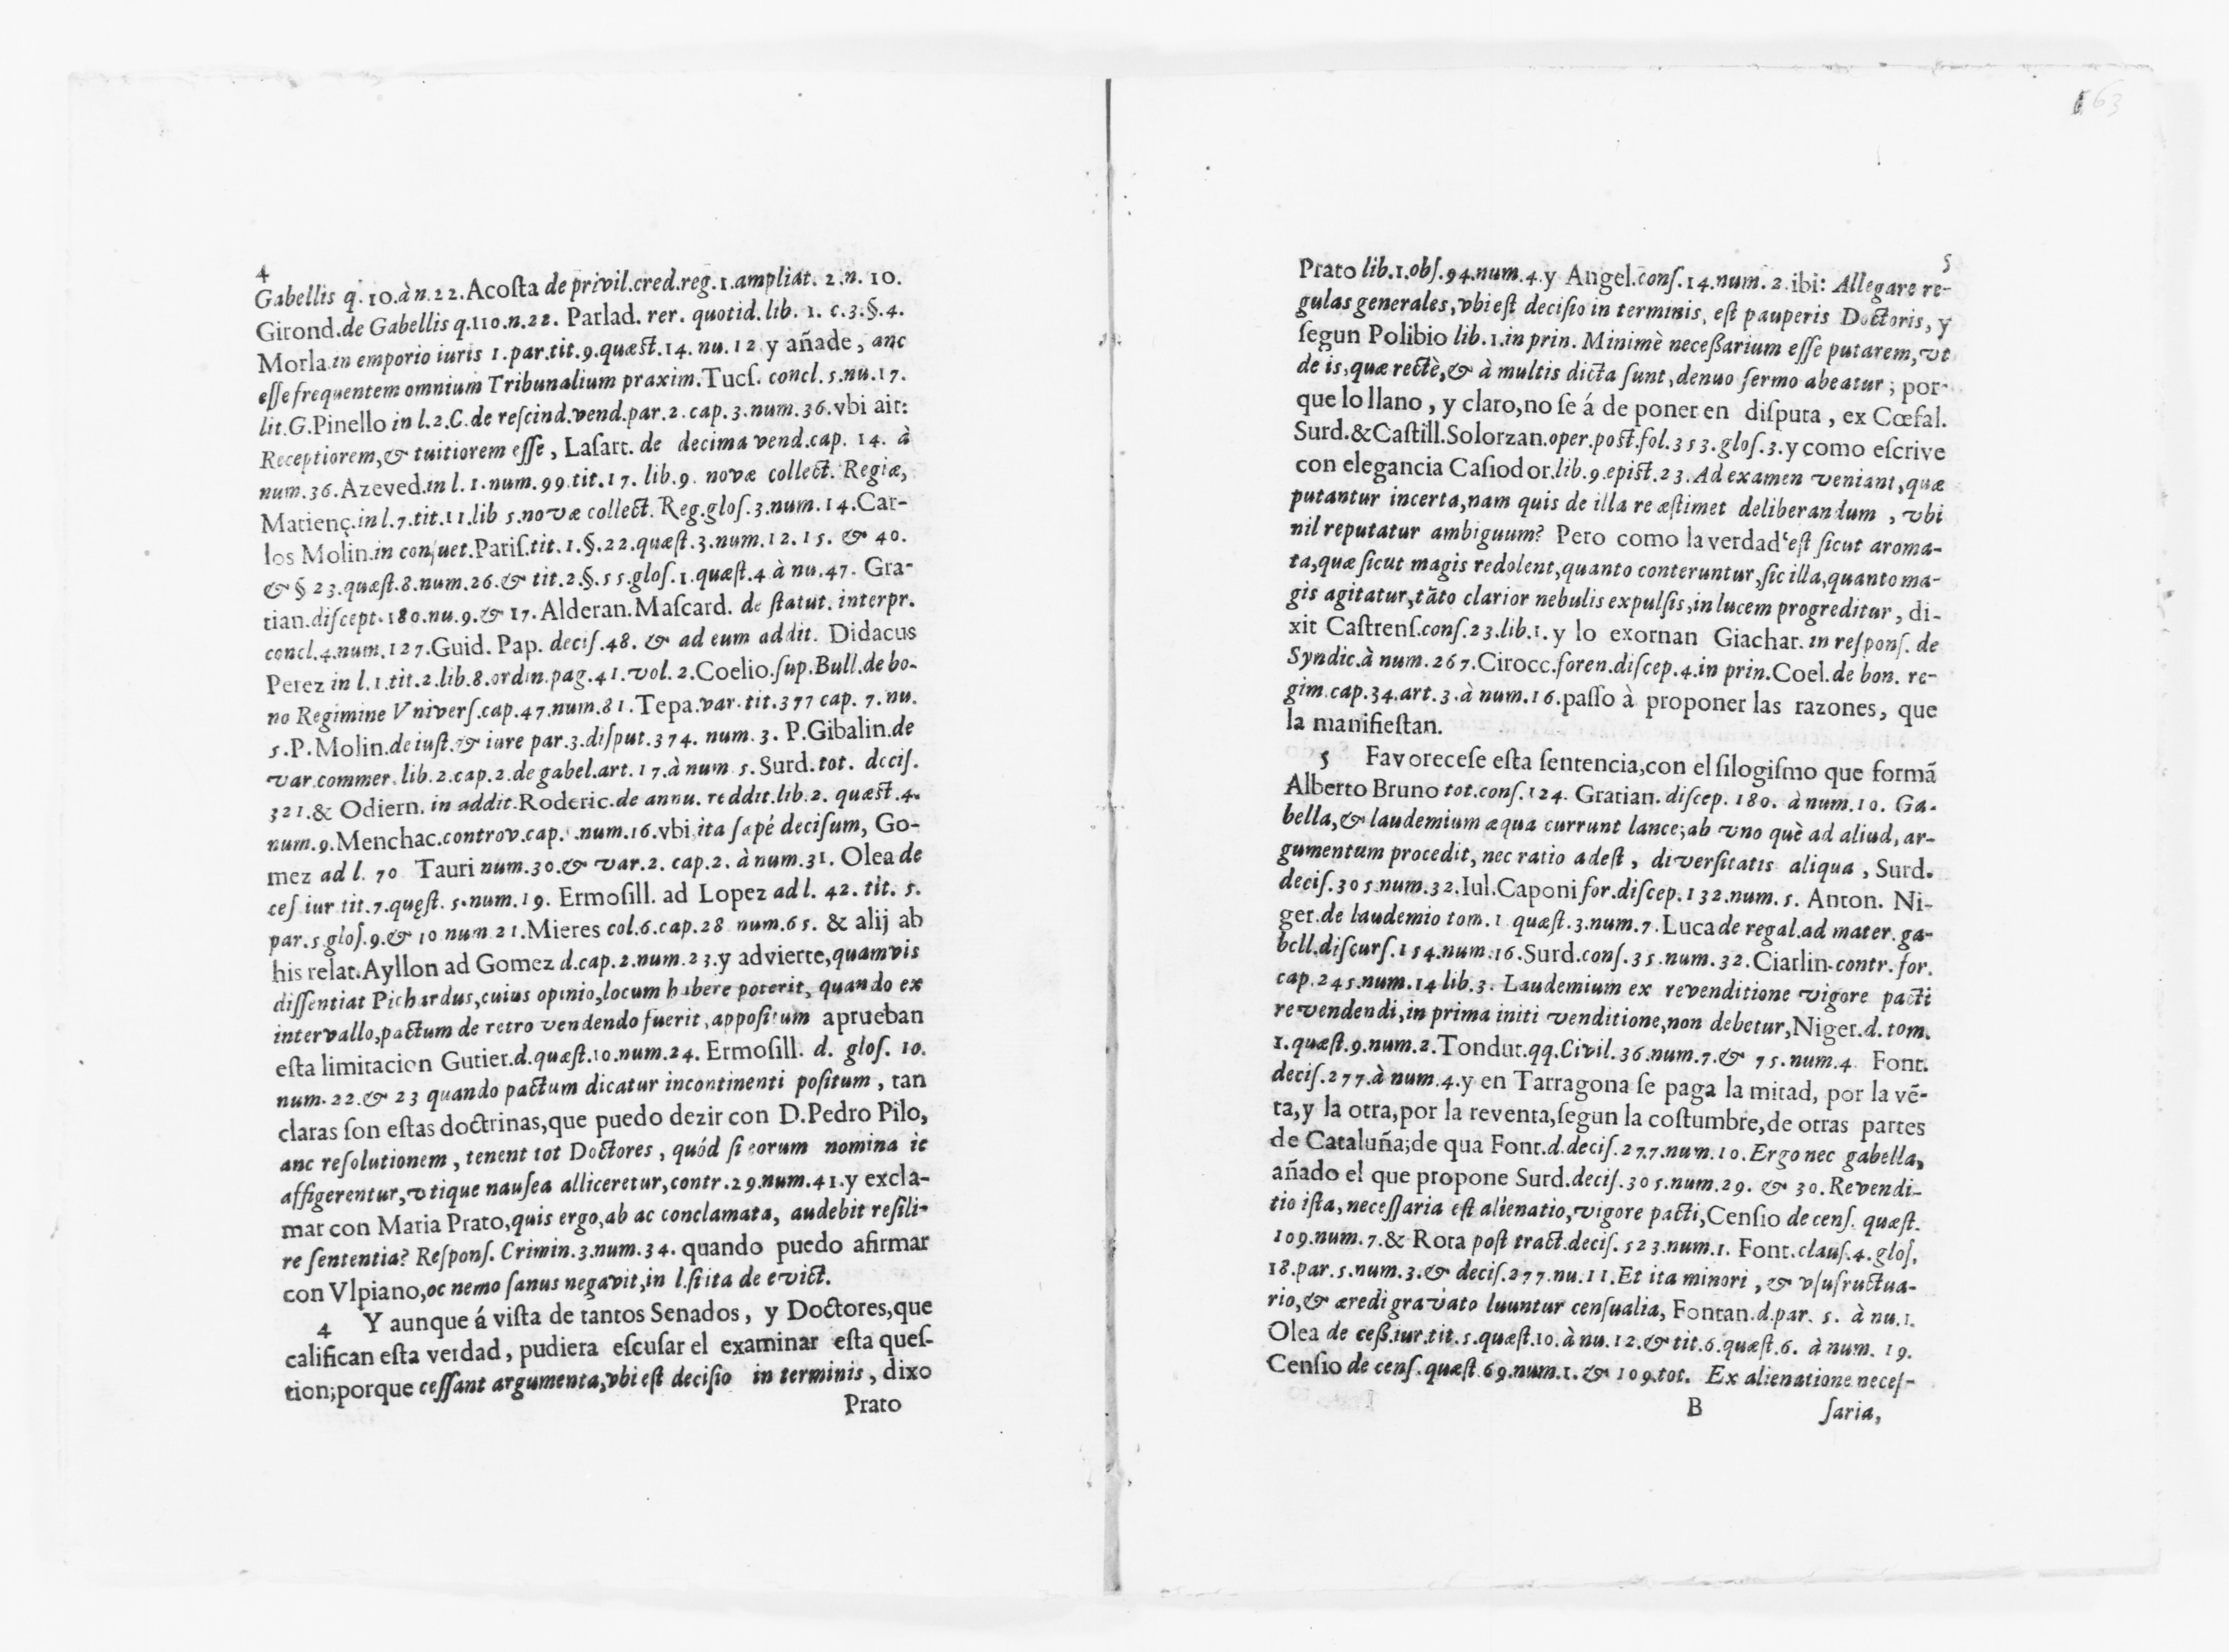 4
Gabellis q. 10.à n.22.Acoſta de privil.cred.reg.1.ampliat. 2.n. 10.
Girond.de Gabellis q.110.n.22. Parlad. rer. quotid. lib. 1. c.3.§.4.
Morla.in emporio iuris 1.par.tit.9.quæſt.14. nu.12.y añade, anc
eſſe frequentem omnium Tribunalium praxim.Tucſ. concl.5.nu.17.
lit.G.Pinello in l.2.C.de reſcind.vend.par.2.cap.3.num.36.vbi ait:
Receptiorem,& tuitiorem eſſe, Laſart. de decima vend.cap. 14. à
num.36.Azeved.in l.1.num.99.tit.17. lib.9. novæ collect. Regiæ,
Matienç.in l.7.tit.11.lib 5.novæ collect. Reg.gloſ.3.num.14.Car-
los Molin.in conſuet.Pariſ.tit.1.§.22.quæſt.3.num.12.15. & 40.
& § 23.quæſt.8.num.26.& tit.2.§.55.gloſ.1.quæſt.4 à nu.47. Gra-
tian.diſcept.180.nu.9.& 17.Alderan.Maſcard. de ſtatut. interpr.
concl.4.num.127.Guid. Pap. deciſ.48. & ad eum addit. Didacus
Perez in l.1.tit.2.lib.8.ordin.pag.41.vol.2.Coelio.ſup.Bull.de bo-
no Regimine Vniverſ.cap.47.num.81.Tepa.var.tit.377 cap. 7.nu.
5.P.Molin.de iuſt.& iure par.3.diſput.374. num.3. P.Gibalin.de
var.commer.lib.2.cap.2.de gabel.art.17.à num 5.Surd.tot. deciſ.
321.& Odiern. in addit.Roderic.de annu. reddit.lib.2. quæſt.4.
num.9.Menchac.controv.cap. .num.16.vbi ita ſæpé deciſum, Go-
mez ad l. 70 Tauri num.30.& var.2. cap.2. à num.31. Olea de
ceſ iur tit.7.quęſt. 5.num.19. Ermoſill. ad Lopez ad l. 42. tit. 5.
par.5 gloſ.9.& 10 num 21.Mieres col.6.cap.28 num.65. & alij ab
his relat.Ayllon ad Gomez d.cap.2.num.23.y advierte,quamvis
diſſentiat Pichardus,cuius opinio,locum habere poterit, quando ex
intervallo,pactum de retro vendendo fuerit,appoſitum aprueban
eſta limitacion Gutier.d.quæſt.10.num.24. Ermoſill. d. gloſ. 10.
num.22.& 23 quando pactum dicatur incontinenti poſitum, tan
claras ſon eſtas doctrinas,que puedo dezir con D.Pedro Pilo,
anc reſolutionem, tenent tot Doctores, quód ſi eorum nomina ic
affigerentur,vtique nauſea alliceretur,contr.29.num.41.y excla-
mar con Maria Prato,quis ergo,ab ac conclamata, audebit reſili-
re ſententia? Reſponſ. Crimin.3.num.34. quando puedo afirmar
con Vlpiano,oc nemo ſanus negavit,in l.ſi ita de evict.
4 Y aunque á viſta de tantos Senados, y Doctores,que
califican eſta verdad, pudiera eſcuſar el examinar eſta queſ-
tion;porque ceſſant argumenta,vbi eſt deciſio in terminis, dixo
Prato
63
5
Prato lib.1.obſ.94.num.4.y Angel.conſ.14.num.2.ibi: Allegare re-
gulas generales,vbi eſt deciſio in terminis, eſt pauperis Doctoris, y
ſegun Polibio lib.1.in prin. Minimè neceßarium eſſe putarem,vt
de is,quæ rectè,& à multis dicta ſunt,denuo ſermo abeatur; por-
que lo llano, y claro,no ſe á de poner en diſputa, ex Cœfal.
Surd.&Caſtill.Solorzan.oper.poſt.fol.353.gloſ.3.y como eſcrive
con elegancia Caſiodor.lib.9.epiſt.23.Ad examen veniant,quæ
putantur incerta,nam quis de illa re æſtimet deliberandum, vbi
nil reputatur ambiguum? Pero como la verdad eſt ſicut aroma-
ta,quæ ſicut magis redolent,quanto conteruntur,ſic illa,quanto ma-
gis agitatur,tãto clarior nebulis expulſis,in lucem progreditur, di-
xit Caſtrenſ.conſ.23.lib.1.y lo exornan Giachar. in reſponſ. de
Syndic.à num.267.Cirocc.foren.diſcep.4.in prin.Coel.de bon. re-
gim.cap.34.art.3.à num.16.paſſo à proponer las razones, que
la manifieſtan.
5 Favoreceſe eſta ſentencia,con el ſilogiſmo que formã
Alberto Bruno tot.conſ.124. Gratian. diſcep. 180. à num.10. Ga-
bella,& laudemium æqua currunt lance;ab vno què ad aliud, ar-
gumentum procedit, nec ratio adeſt, diverſitatis aliqua, Surd.
deciſ.305.num.32.Iul.Caponi for.diſcep.132.num.5. Anton. Ni-
ger.de laudemio tom.1 quæſt.3.num.7.Luca de regal.ad mater.ga-
bell.diſcurſ.154.num.16.Surd.conſ.35.num.32.Ciarlin.contr.for.
cap.245.num.14 lib.3. Laudemium ex revenditione vigore pacti
revendendi,in prima initi venditione,non debetur,Niger.d. tom.
1.quæſt.9.num.2.Tondut.qq.Civil.36.num.7.& 75.num.4 Font.
deciſ.277.à num.4.y en Tarragona ſe paga la mitad, por la vẽ-
ta,y la otra,por la reventa,ſegun la coſtumbre,de otras partes
de Cataluña;de qua Font.d.deciſ.277.num.10.Ergo nec gabella,
añado el que propone Surd.deciſ.305.num.29. & 30.Revendi-
tio iſta,neceſſaria eſt alienatio,vigore pacti,Cenſio de cenſ. quæſt.
109.num.7.& Rota poſt tract.deciſ.523.num.1. Font.clauſ.4.gloſ.
18.par.5.num.3.& deciſ.277.nu.11.Et ita minori, & vſufructua-
rio,& æredi gravato luuntur cenſualia, Fontan.d.par. 5. à nu.1.
Olea de ceß.iur.tit.5.quæſt.10.à nu.12.& tit.6.quæſt.6. à num. 19.
Cenſio de cenſ.quæſt 69.num.1.& 109.tot. Ex alienatione neceſ-
B ſaria,